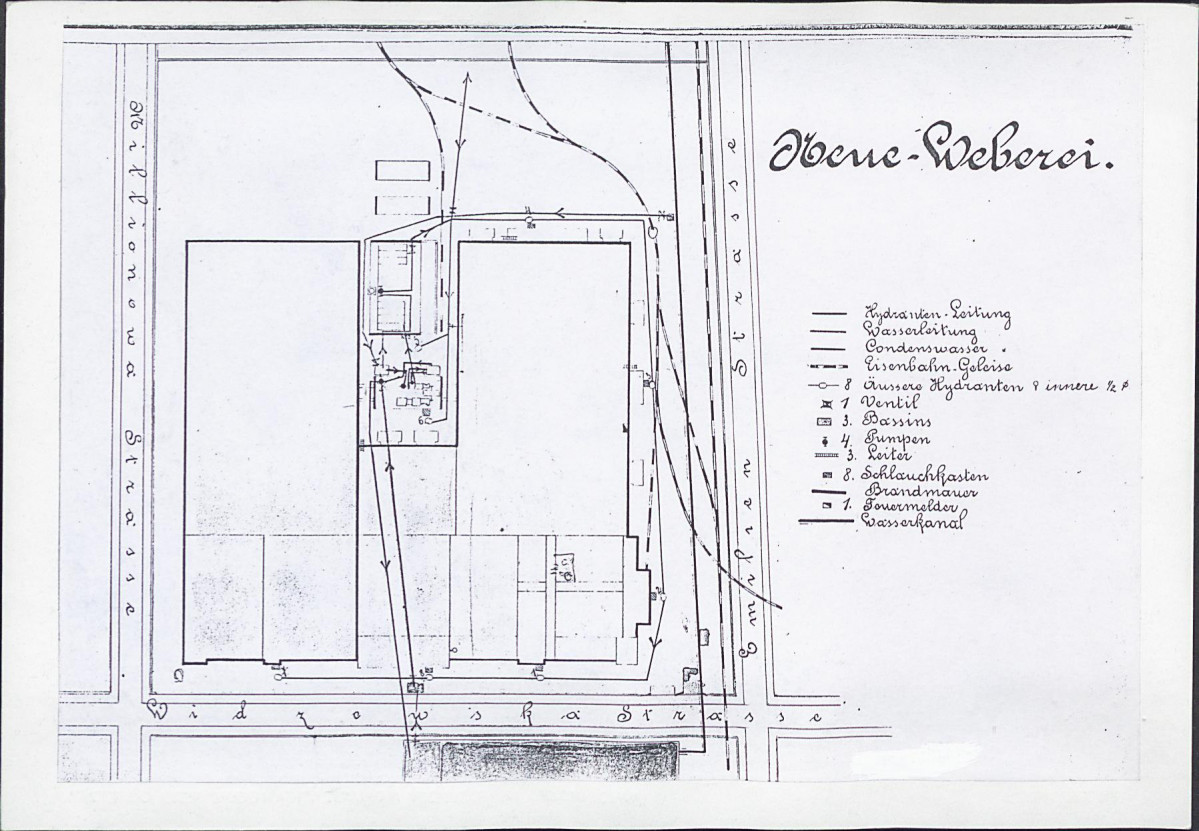 Neue-Weberei.
Millionowa Strasse
Emilien Strasse
Widzewska Strasse
Hydranten-Leitung
Wasserleitung
Condenswasser "
Eisenbahn-Geleise
8 Äussere Hydranten & innere ½ φ
1 Ventil
3. Bassins
4. Pumpen
3. Leiter
8. Schlauchkasten
Brandmauer
1. Feuermelder
Wasserkanal